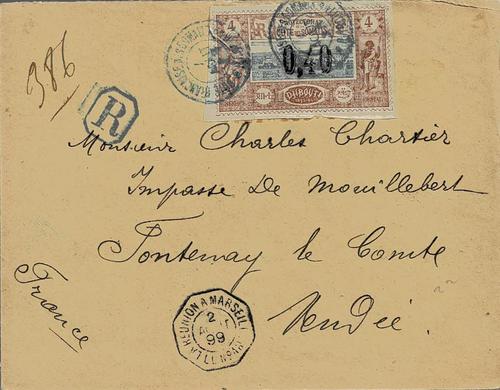 386
R
4 4
0,40
DJIBOUTI
Monsieur Charles Chartier
Impasse De Mouillebert
Fontenay le Comte
Vendée.
France
LA REUNION A MARSEILLE
2
99